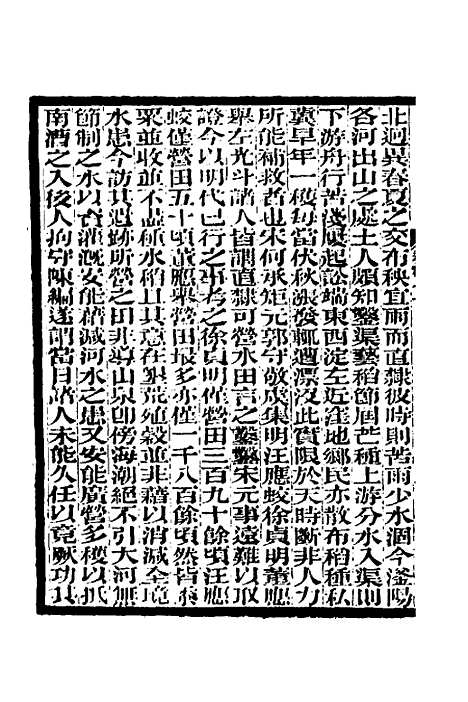 北迥異春夏之交布秧宜雨而直隸彼時則苦雨少水涸今滏陽
各河出山之處土人頗知鑿渠藝稻節屆芒種上游分水入渠則
下游舟行苦淺屢起訟端東西淀左近窪地鄉民亦散布稻種私
冀旱年一穫每當伏秋漲發輒遭漂沒此實限於天時斷非人力
所能補救者也宋何承矩元郭守敬虞集明汪應蛟徐貞明董應
舉左光斗諸人皆謂直隸可營水田言之鑿鑿宋元事遠難以取
證今以明代已行之事考之徐貞明僅營田三百九十餘頃汪應
蛟僅營田五十頃董應舉營田最多亦僅一千八百餘頃然皆黍
粟並收並不盡種水稻且其意在墾荒殖穀並非藉以消減全境
水患今訪其遺跡所營之田非導山泉卽傍海潮絕不引大河無
節制之水以資灌溉安能藉減河水之患又安能廣營多穫以抵
南漕之入後人拘守陳編遂謂當日諸人未能久任以竟厥功其